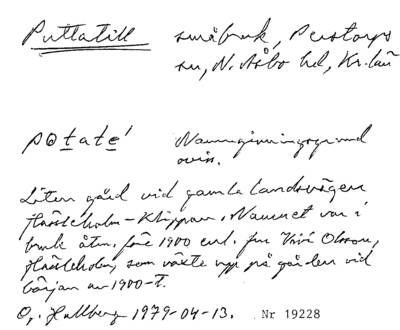 Puttatill småbruk, Perstorps
sn, N. Åsbo hd, Kr. län
potate' Namngivningsgrund
oviss.
Liten gård vid gamla landsvägen
Hässleholm-Klippan. Namnet var i
bruk åtm. före 1900 enl. fru Olsson,
Hässleholm, som växte upp på gården vid
början av 1900-t.
O. Hallberg 1979-04-13. Nr 19228